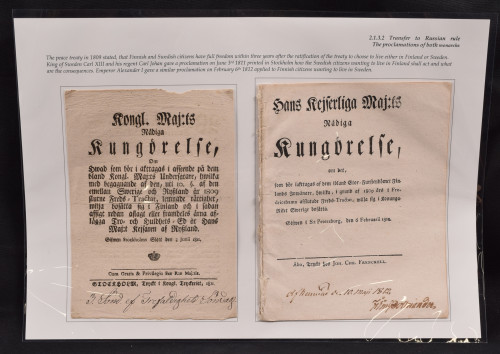 2.1.3.2 Transfer to Russian rule
The proclamations of both monarchs
The peace treaty in 1809 stated, that Finnish and Swedish citizens have full freedom within three years after the ratification of the treaty to choose to live either in Finland or Sweden.
King of Sweden Carl XIII and his regent Carl Johan gave a proclamation on June 3rd 1811 printed in Stockholm how the Swedish citizens wanting to live in Finland shall act and what
are the consequences. Emperor Alexander I gave a similar proclamation on February 6th 1812 applied to Finnish citizens wanting to live in Sweden.
Kongl. Maj:ts
Nådiga
Kungörelse,
Om
Hwad som bör i akttagas i afseende på dem
bland Kongl. Maj:ts Undersåtare, hwilka
med begagnande af den, uti 10. §. af den
emellan Swerige och Ryssland år 1809
slutne Freds-Tractat, lemnade rättighet,
wilja bosätta sig i Finland och i sådan
afsigt redan aflagt eller framdeles ärna af-
lägga Tro- och Huldhets-Ed åt Hans
Maj:t Kejsaren af Ryssland.
Gifwen Stockholms Slott den 3 Junii 1811.
Cum Gratia & Privilegio Sac. Reg. Maj:tis.
STOCKHOLM, Tryckt i Kongl. Tryckeriet, 1811.
Hans Kejserliga Maj:ts
Nådiga
Kungörelse,
om det,
som bör iakttagas af dem ibland Stor-Furstendömet Fin-
lands Inwånare, hwilka, i grund af 1809 års i Fre-
drikshamn afslutade Freds-Tractat, wilja sig i Konunga-
Riket Swerige bosätta.
Gifwen i St. Petersburg, den 6 Februarii 1812.
Åbo, Tryckt hos Joh. Chr. Frenckell.